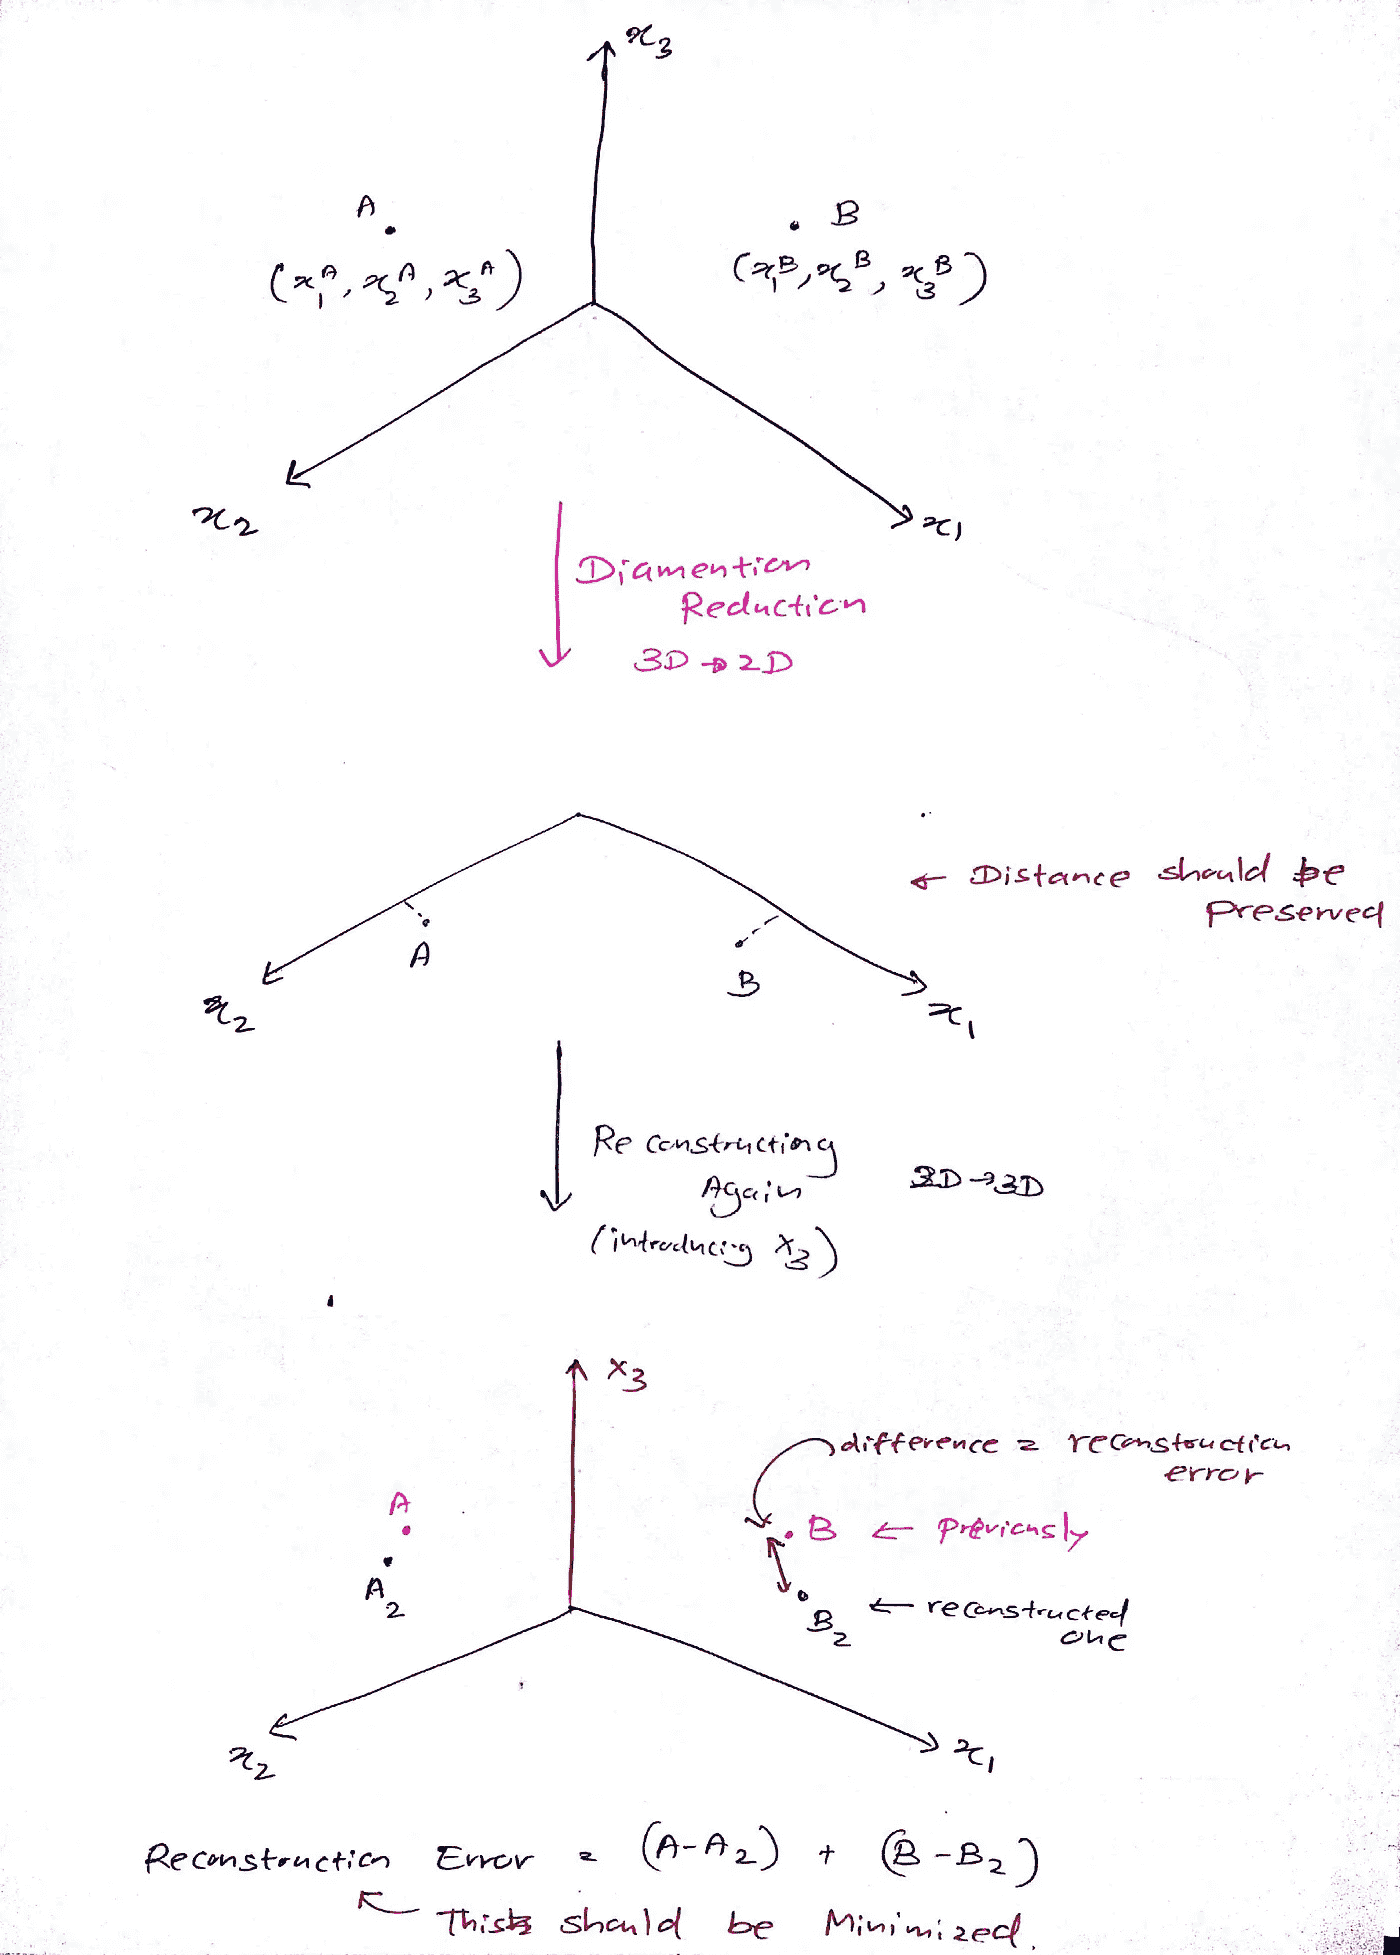 x₃
A
B
(x₁ᴬ, x₂ᴬ, x₃ᴬ)
(x₁ᴮ, x₂ᴮ, x₃ᴮ)
x₂
x₁
Diamention
Reduction
3D → 2D
← Distance should be
Preserved
A
B
x₂
x₁
Re constructing
Again
2D → 3D
(introducing x₃)
x₃
difference = reconstruction
error
A
B ← Previously
A₂
B₂ ← reconstructed
one
x₂
x₁
Reconstruction Error = (A-A₂) + (B-B₂)
This should be Minimized.